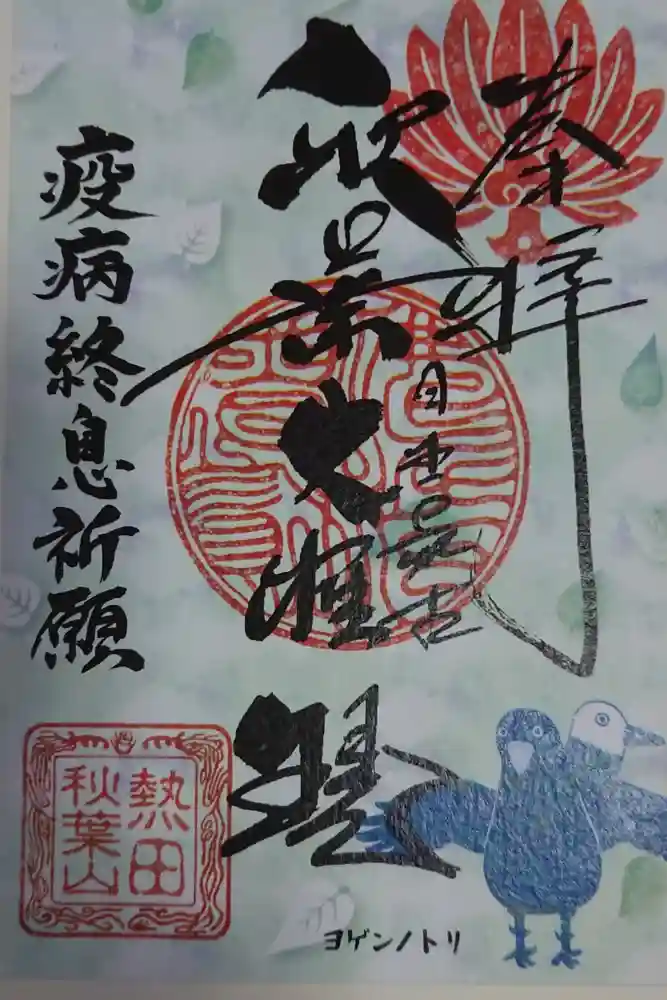 奉拝
秋葉大權現
疫病終息祈願
熱田
秋葉山
ヨゲンノトリ